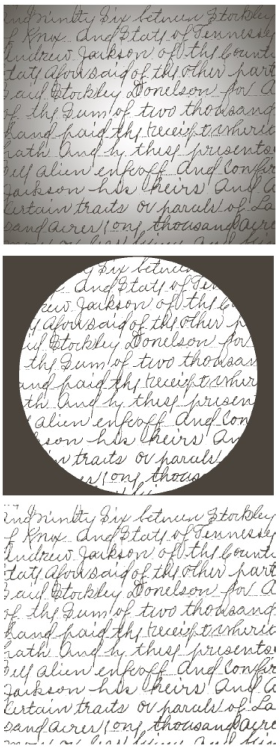 ind Ninety Six between Stockley
of Knox and State of Tennessey
Andrew Jackson of the Count
tate Aforesaid of the other part
said Stockley Donelson for a
of the Sum of two thousand
hand paid the receipt where
hath and by these presents
sell alien enfeoff and Confir
Jackson his heirs and a
certain traits or parcels of La
sand acres (one thousand acre
ty Six between
and State of Ten
rew Jackson of the Co
Aforesaid of the other p
id Stockley Donelson for
the Sum of two thousan
and paid the receipt wher
th and by these presen
alien enfeoff and Con
son his heirs an
in traits or parcels
es (one thous
ind Ninety Six between Stockley
of Knox and State of Tennessey
Andrew Jackson of the Count
tate Aforesaid of the other part
said Stockley Donelson for a
of the Sum of two thousand
hand paid the receipt where
hath and by these presents
sell alien enfeoff and Confir
Jackson his heirs and a
certain traits or parcels of La
sand acres (one thousand acre